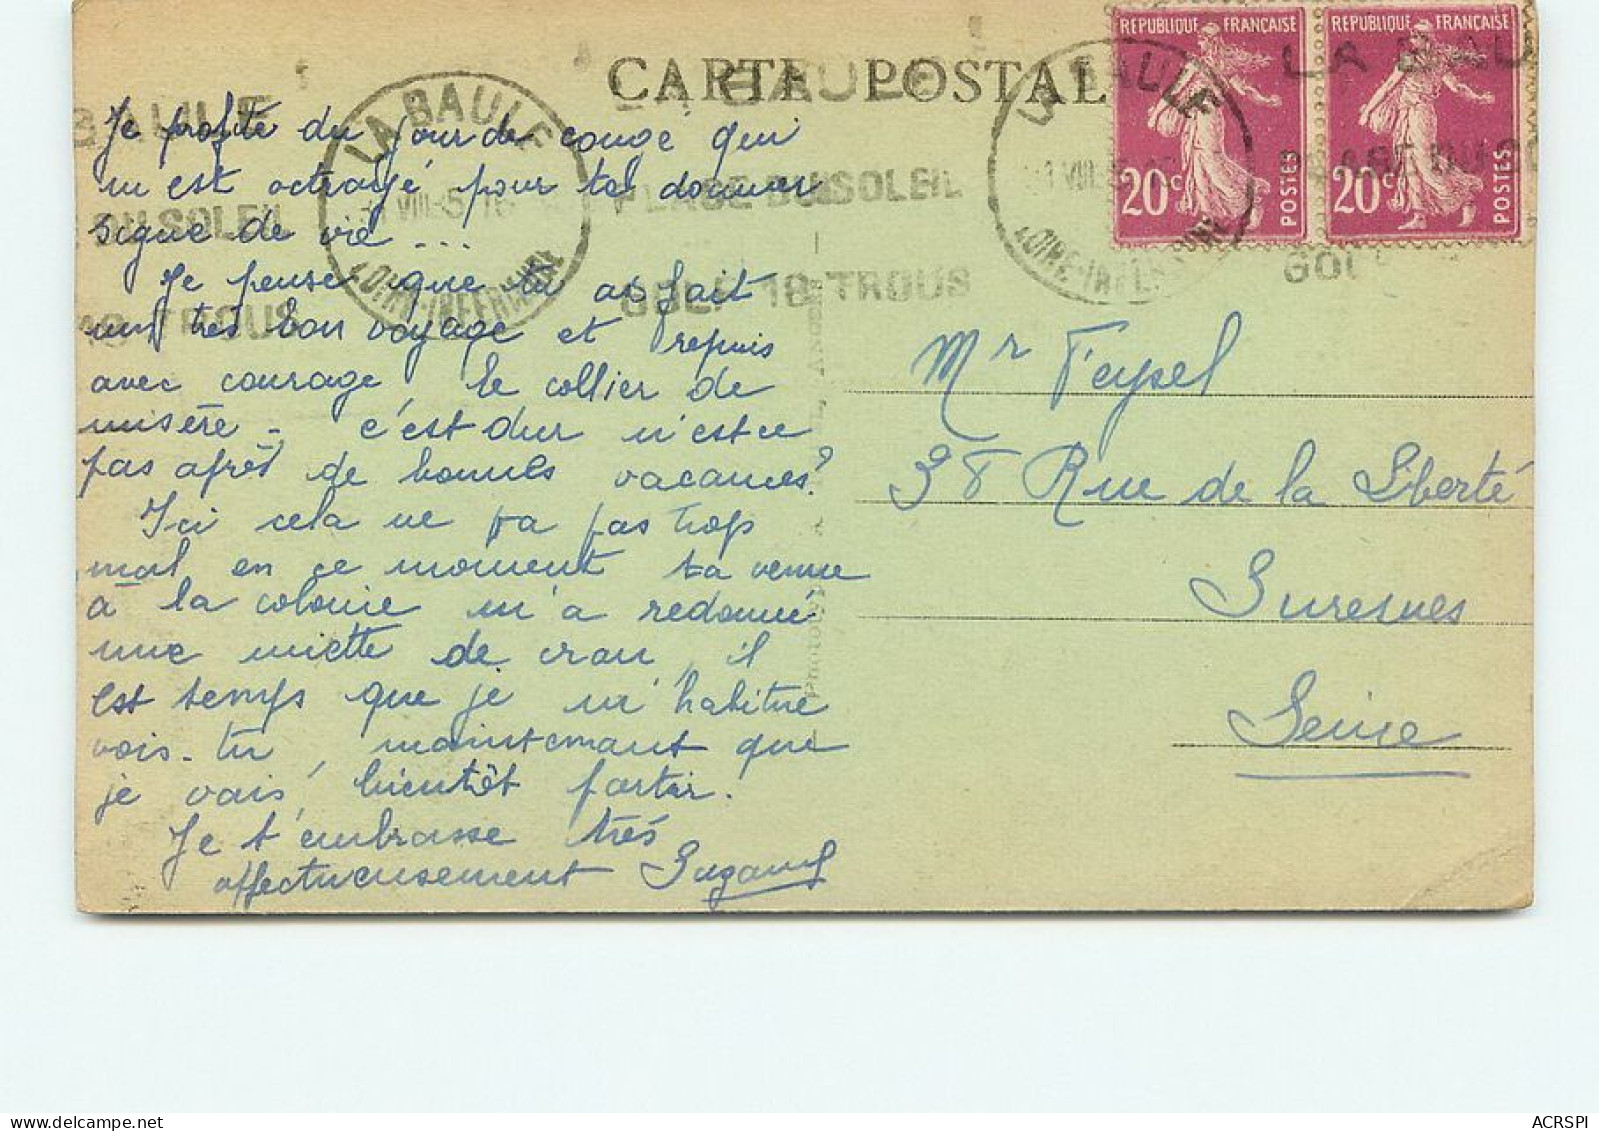 CARTE POSTALE
REPUBLIQUE FRANÇAISE
20c POSTES
REPUBLIQUE FRANÇAISE
20c POSTES
LA BAULE
LOIRE-INFERIEURE
LA BAULE
PLAGE DU SOLEIL
GOLF 18 TROUS
LA BAULE
LOIRE-INFERIEURE
BAULE
DU SOLEIL
18 TROUS
Je profite du jour de congé qui
m'est octroyé pour te donner
signe de vie ...
Je pense que tu as fait
un très bon voyage et repris
avec courage le collier de
misère - c'est dur n'est ce
pas après de bonnes vacances?
Ici cela ne va pas trop
mal en ce moment ta venue
à la colonie m'a redonné
une miette de cran, il
est temps que je m'habitue
vois-tu maintenant que
je vais bientôt partir.
Je t'embrasse très
affectueusement Suzanne
Mr Feysel
38 Rue de la Liberté
Suresnes
Seine
ACRSPI